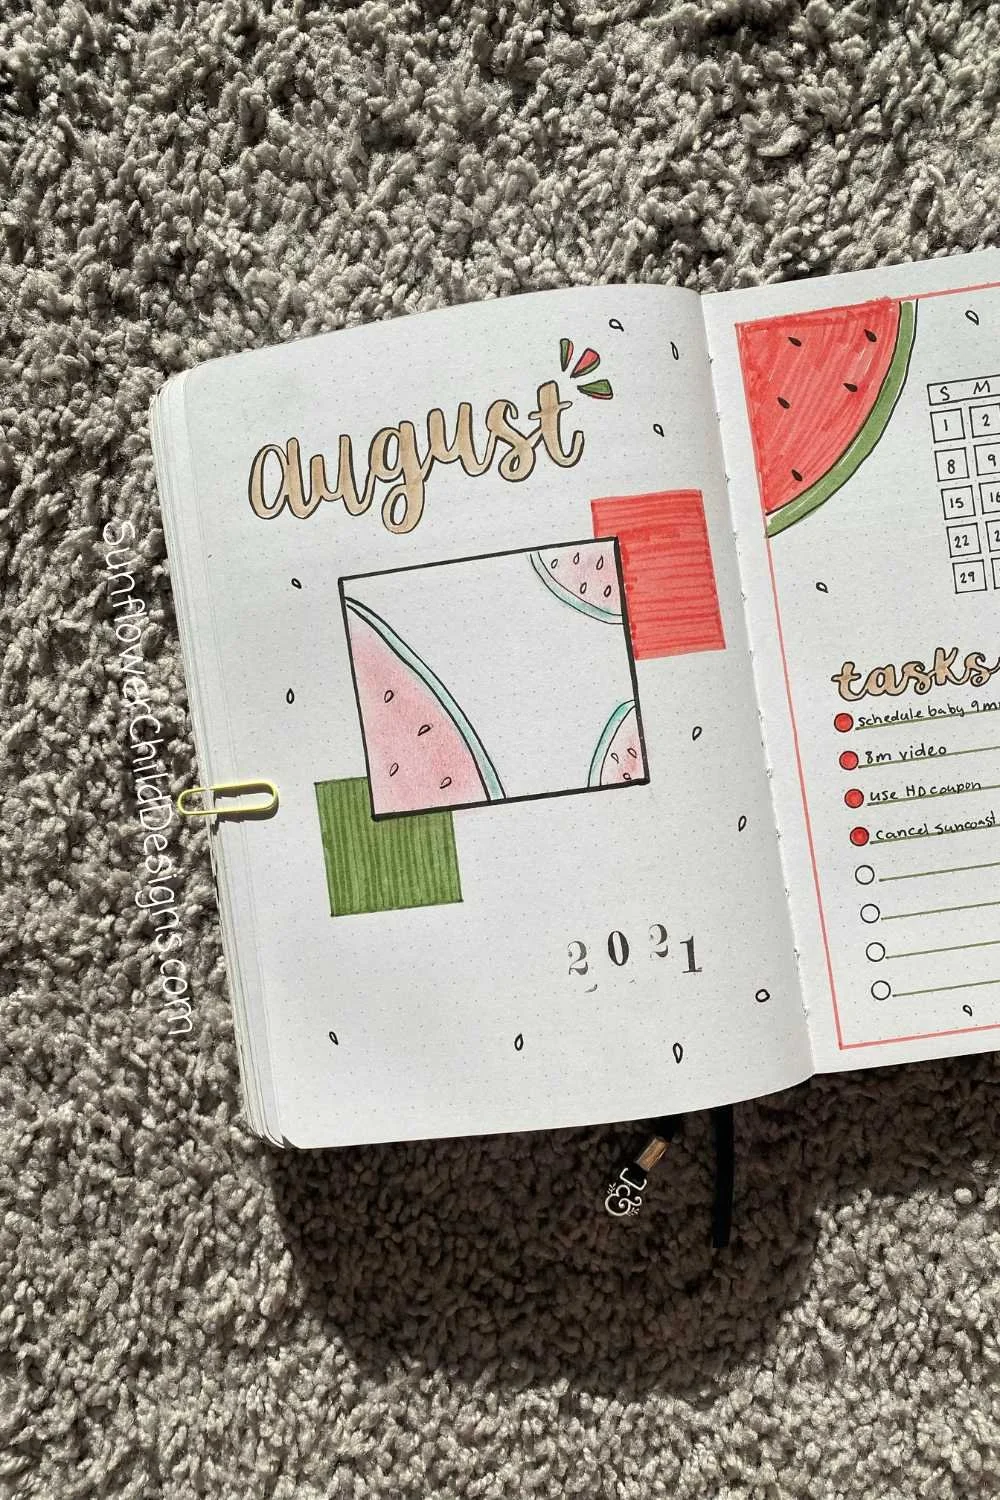 august
2021
sunflowerchilddesigns.com
S M
1 2
8 9
15
22
29
tasks
schedule baby 9m
8m video
use HD coupon
cancel suncoast